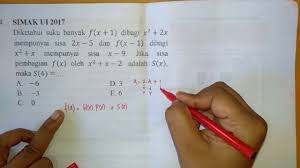 SIMAK UI 2017
Diketahui suku banyak f(x + 1) dibagi x² + 2x
mempunyai sisa 2x - 5 dan f(x - 1) dibagi
x² + x mempunyai sisa x - 9. Jika sisa
pembagian f(x) oleh x² + x - 2 adalah S(x),
maka S(4) = ...
A. -6 D. 3
B. -3 E. 6
C. 0